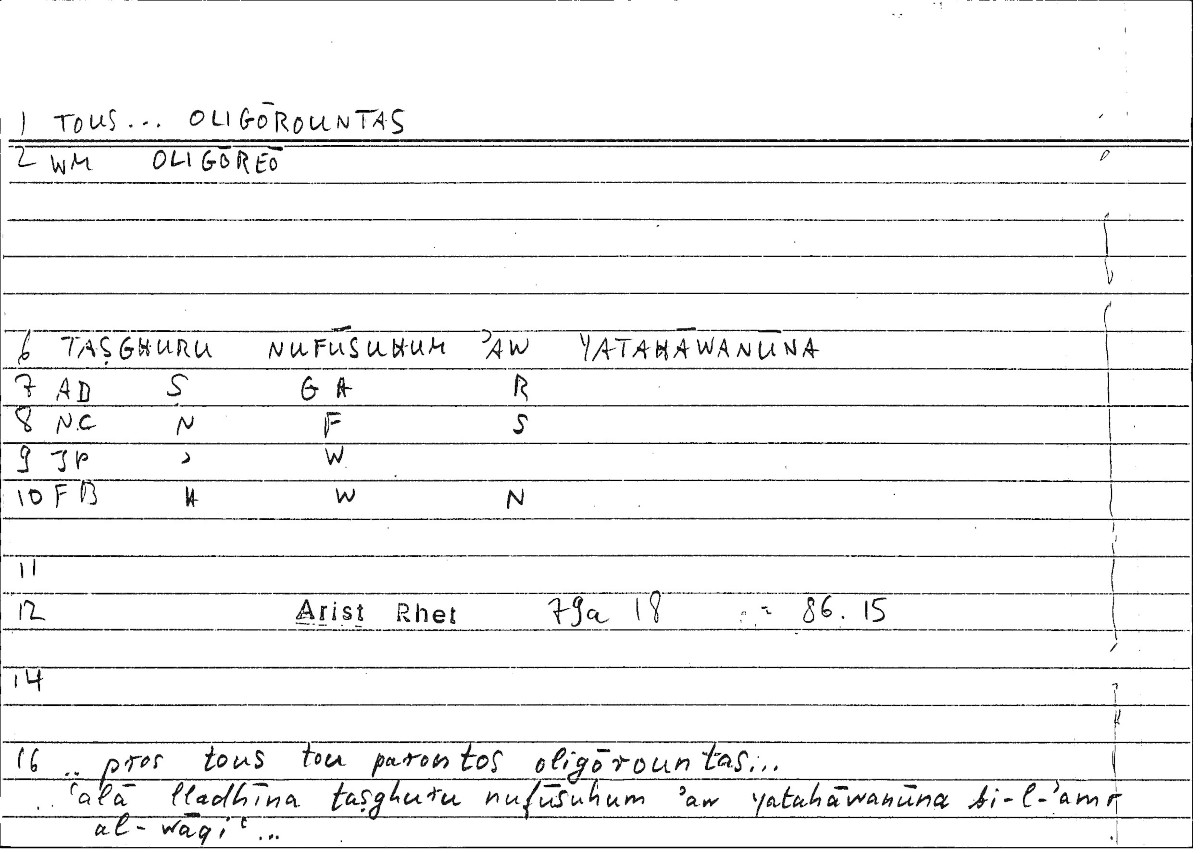 1 TOUS... OLIGŌROUNTAS
2 WM OLIGŌREŌ
6 TAṢGHURU NUFŪSUHUM ʾAW YATAHĀWANŪNA
7 AD Ṣ GH R
8 NC N F S
9 JP ʾ W
10 FB H W N
11
12 Arist Rhet 79a 18 = 86.15
14
16 .. pros tous tou parontos oligōrountas...
.. ʿalā lladhīna taṣghuru nufūsuhum ʾaw yatahāwanūna bi-l-ʾamr
al-wāqiʿ...